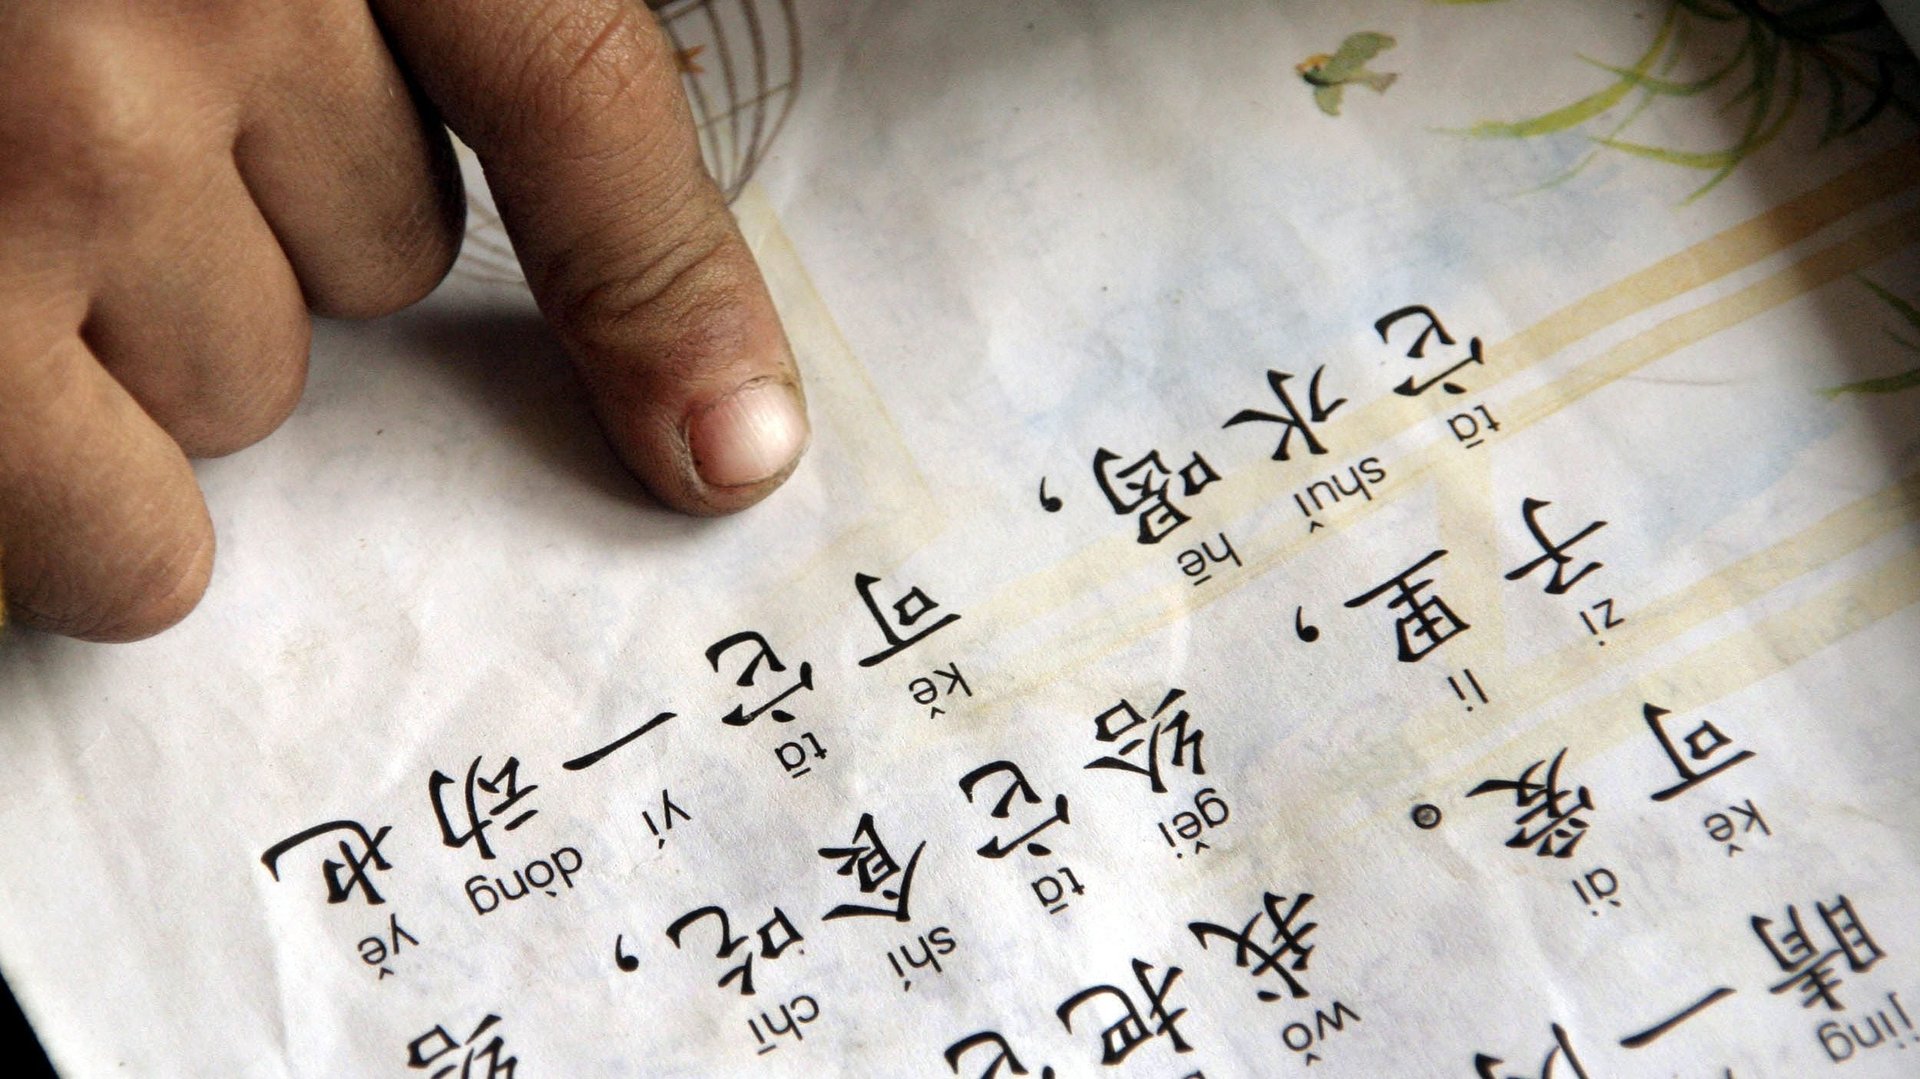 jing
睛 一
kě ài wǒ
可 爱 。 我 把 它
zi li gěi tā shí chī
子 里 ， 给 它 食 吃 ， 给
tā shuǐ hē kě tā yí dòng yě
它 水 喝 ， 可 它 一 动 也